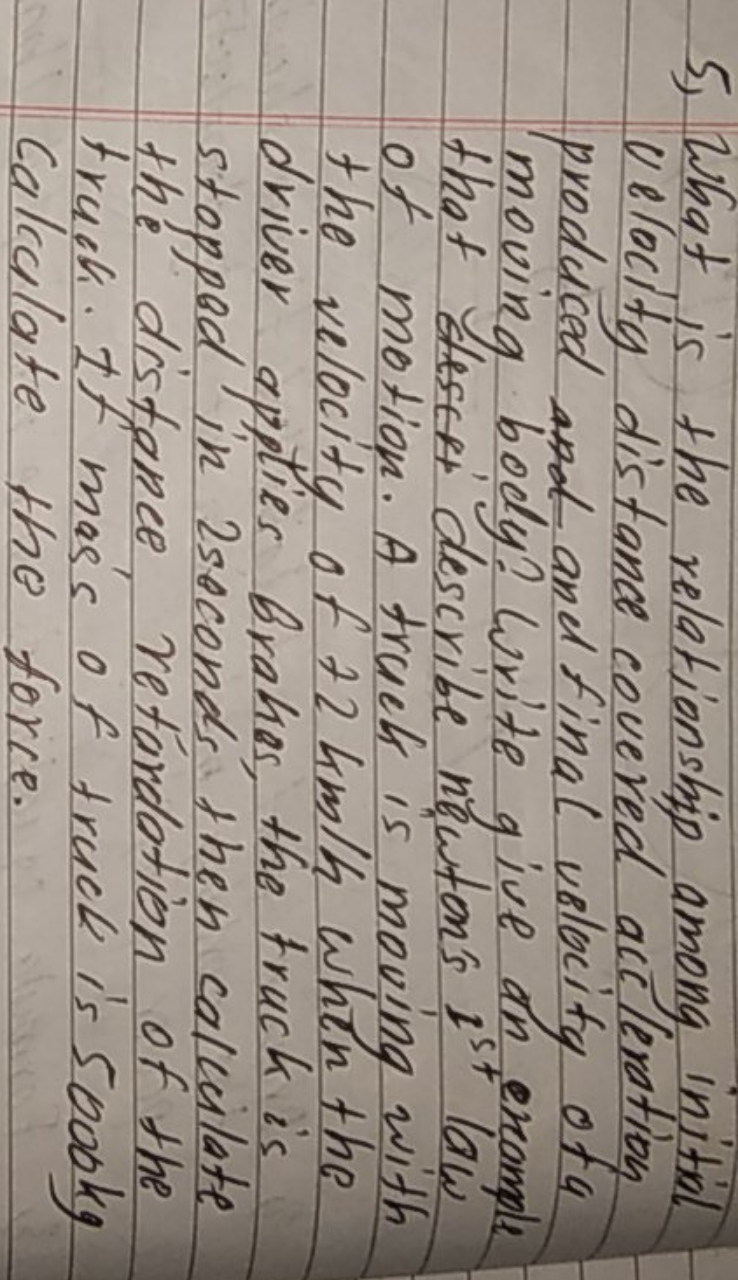 5, What is the relationship among initial
velocity distance covered accleration
produced and and final velocity of a
moving body? Write give an example
that descri describe newton's 1st law
of motion. A truck is moving with
the velocity of 72 km/h when the
driver applies brakes, the truck is
stopped in 2seconds, then calculate
the distance retardation of the
truck. If mass of truck is 5000kg
Calculate the force.